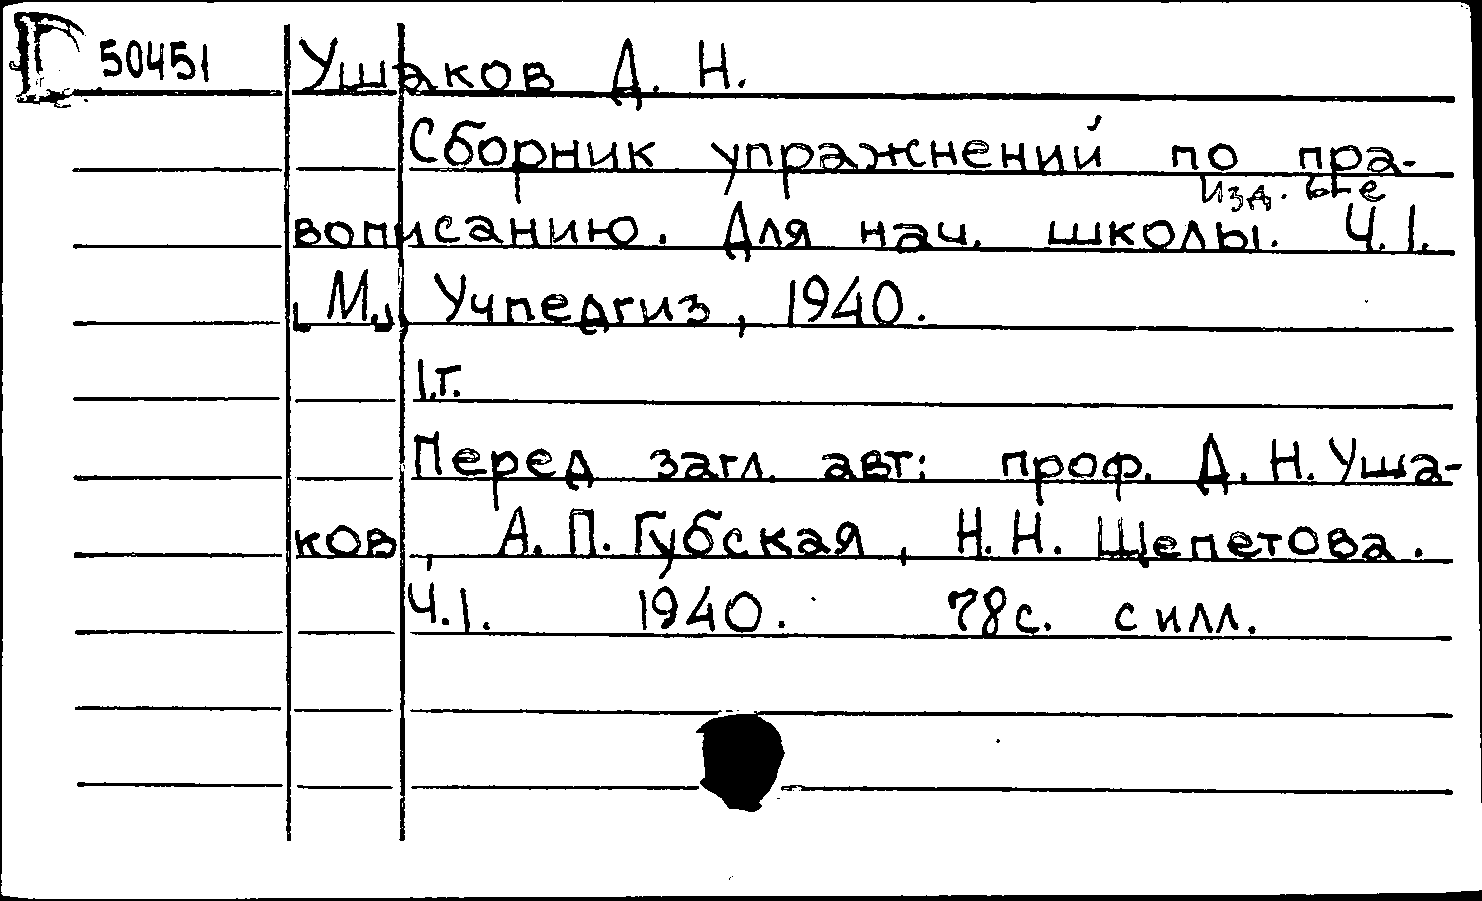 Г 50451 Ушаков Д. Н.
Сборник упражнений по пра-
изд. 6е
вописанию. Для нач. школы. Ч.1.
[М.], Учпедгиз, 1940.
1.т.
Перед загл. авт: проф. Д. Н. Уша-
ков, А. П. Губская, Н. Н. Щепетова.
Ч.1. 1940. 78с. с илл.